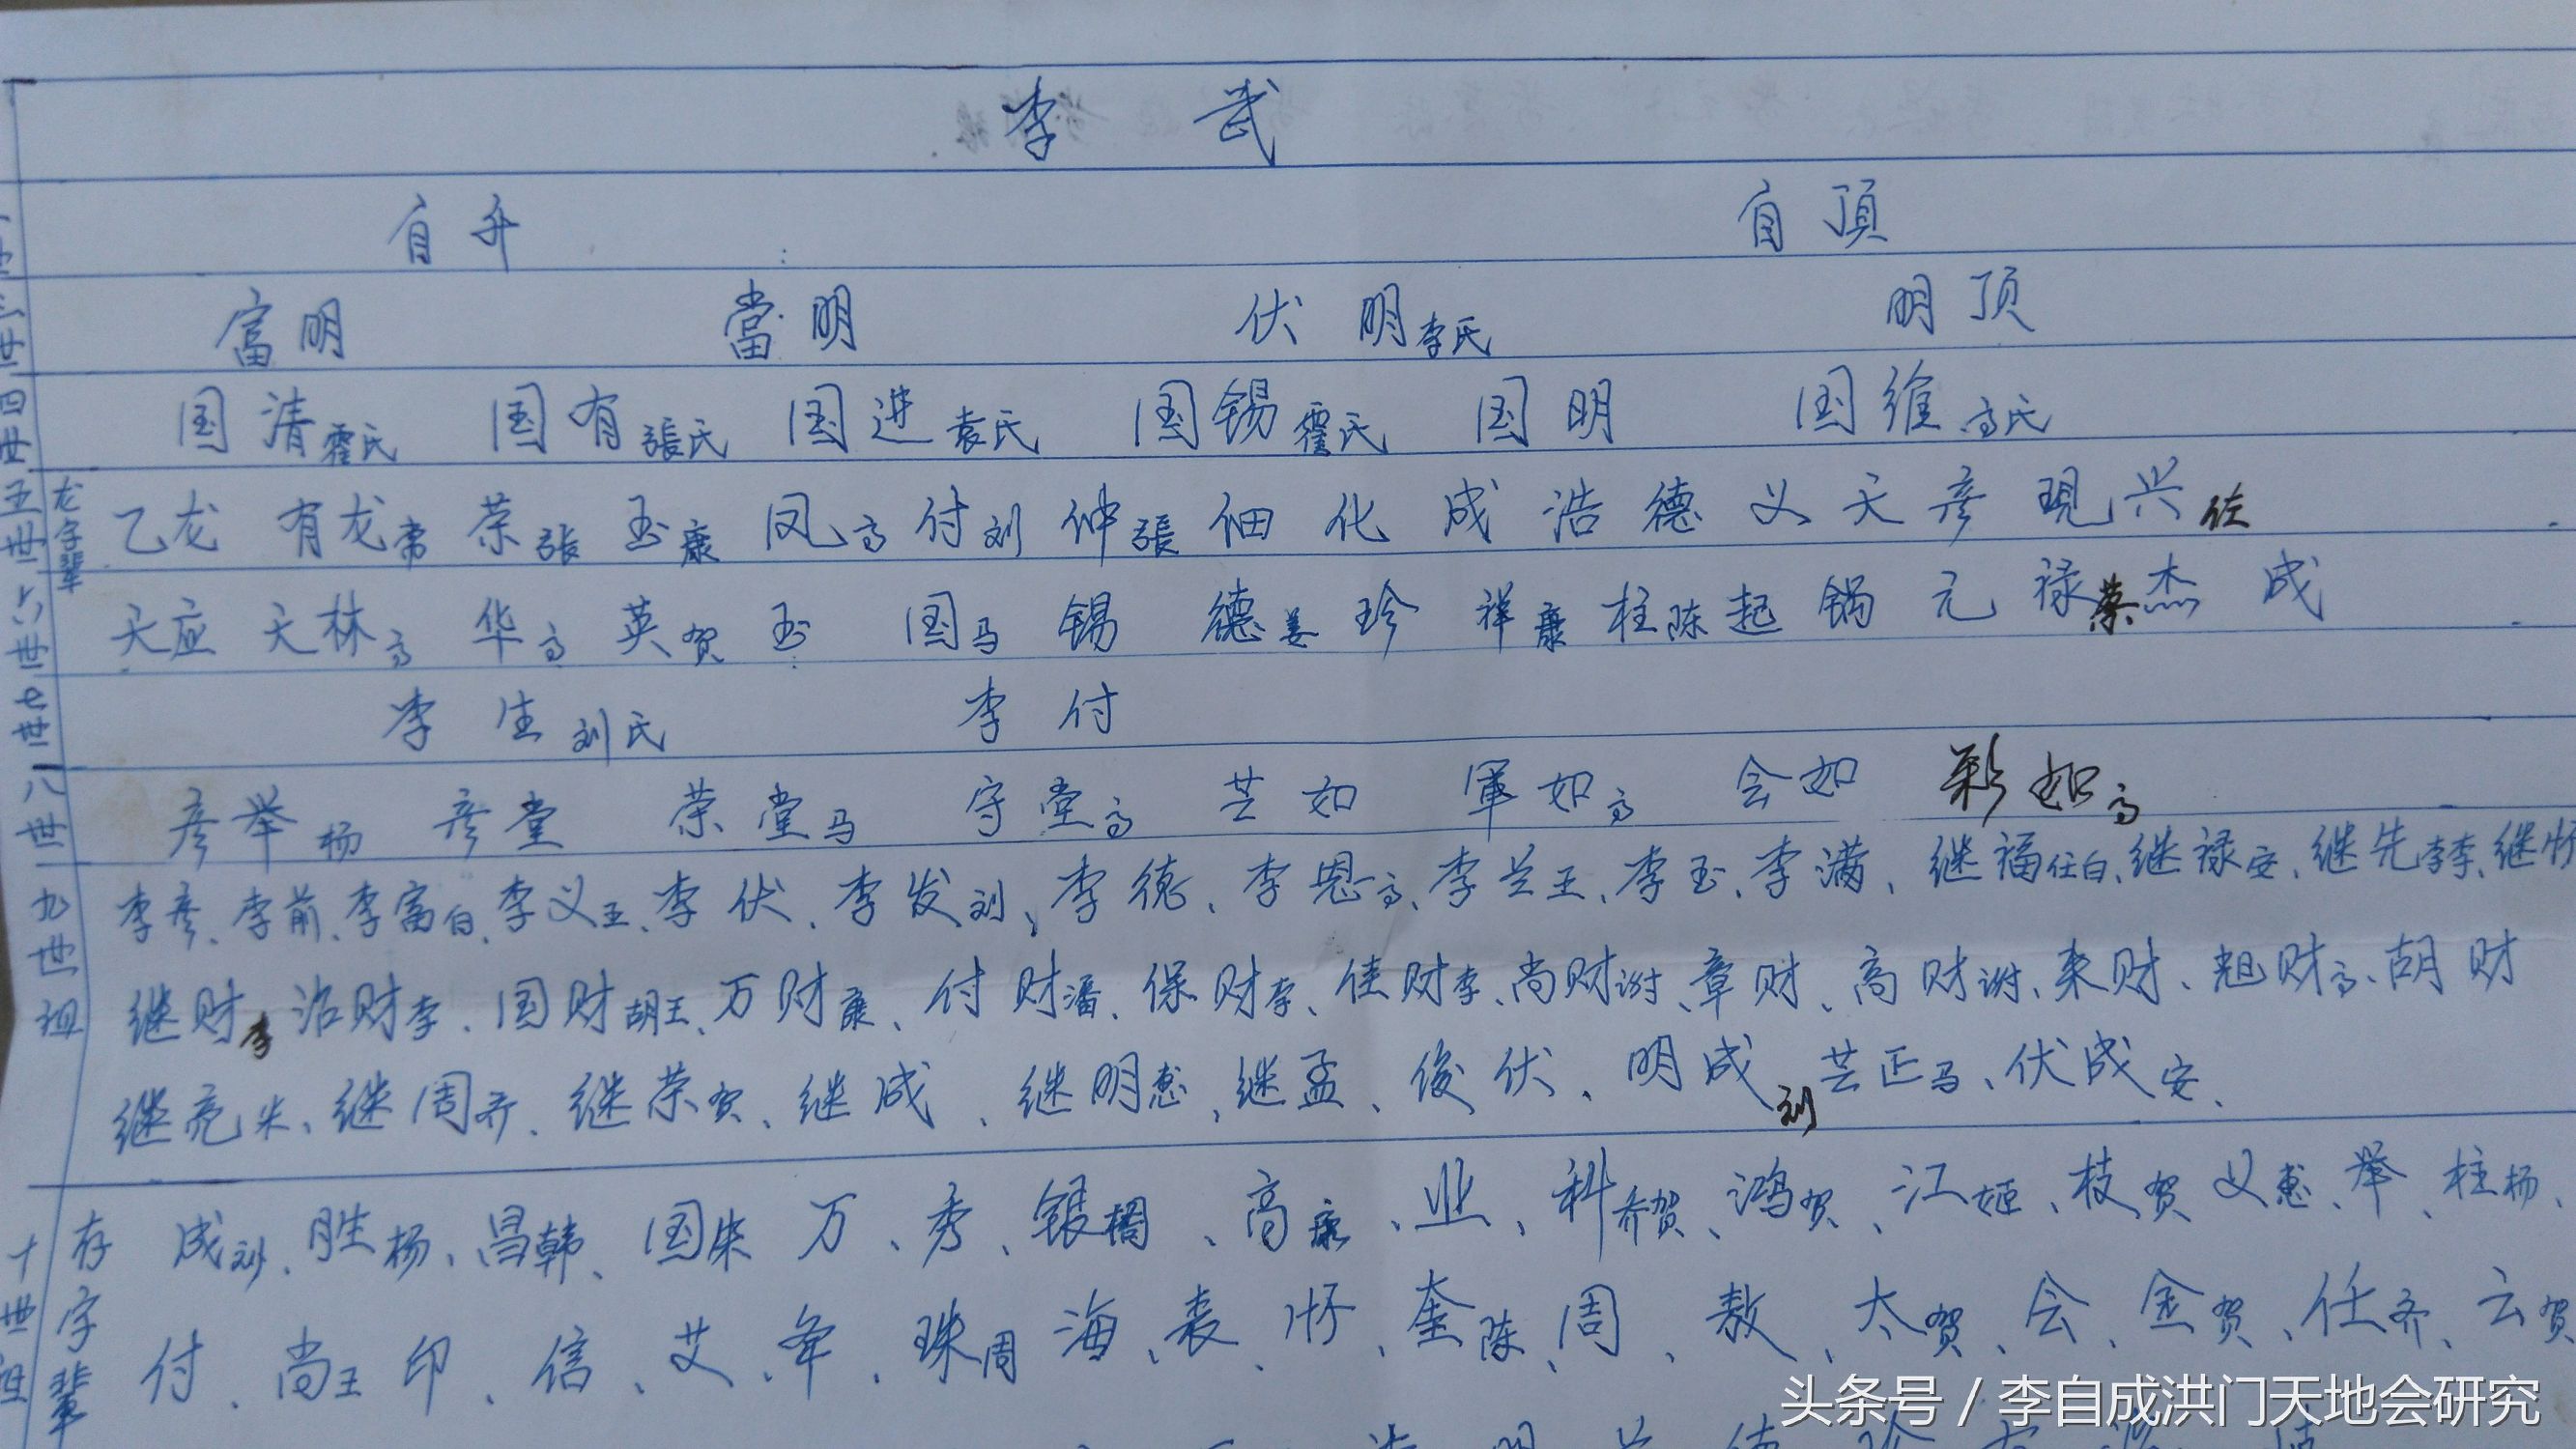 李武
自升 自頂
富明 當明 伏明李氏 明顶
四世 国清霍氏 国有張氏 国进袁氏 国锡霍氏 国明 国维高氏
五世 龙字辈 乙龙 有龙常 荣張 玉康 凤高 付刘 仲張 佃 化 成 浩 德 义 天 彦 現 兴任
六世 天应 天林高 华高 英贺 玉 国马 锡 德姜 珍 祥康 柱陈 起 锅 元 禄蔡 杰 成
七世 李生刘氏 李付
八世 彦举杨 彦堂 荣堂马 守堂高 芸如 軍如高 会如 彩如高
九世祖 李彦、李前、李富白、李义王、李伏、李发刘、李德、李恩高、李兰王、李玉、李满、继福任白、继禄安、继先李李、继怀
继财李 治财李、国财胡王、万财康、付财潘、保财李、佳财李、尚财谢、章财、高财谢、来财、旭财高、胡财
继亮朱、继周乔、继荣贺、继成、继明惠、继孟、俊伏、明成刘 芸正马、伏成安、
十世祖 存字辈 成刘、胜杨、昌韩、国朱 万、秀、银橋、高康、业、科乔贺、鸿贺、江姬、枝贺 义惠、举、柱杨、
付、尚王 印、信、艾、年、珠周 海、袁、怀、奎陈、周、敖、太贺、会、金贺、任齐、云贺
头条号 / 李自成洪门天地会研究